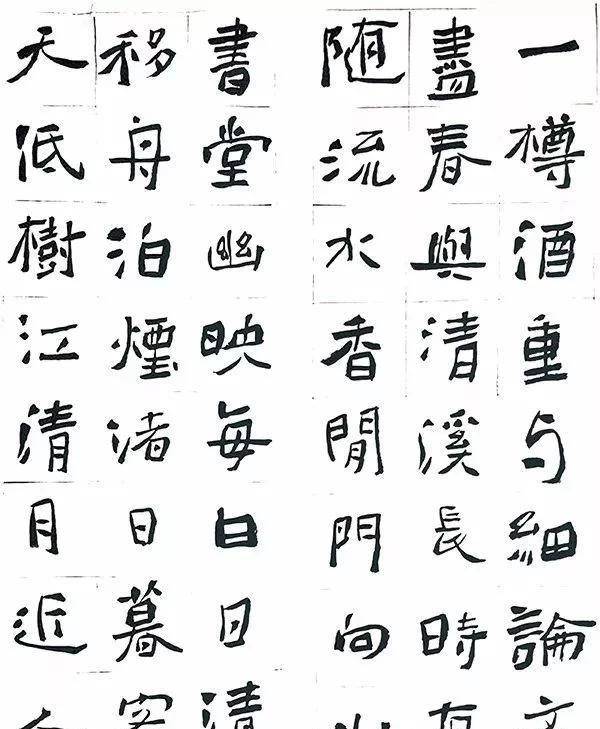 一樽酒重与細論文
盡春與清溪長時有
隨流水香閒門向山
書堂幽映每白日清
移舟泊煙渚日暮客
天低樹江清月近人